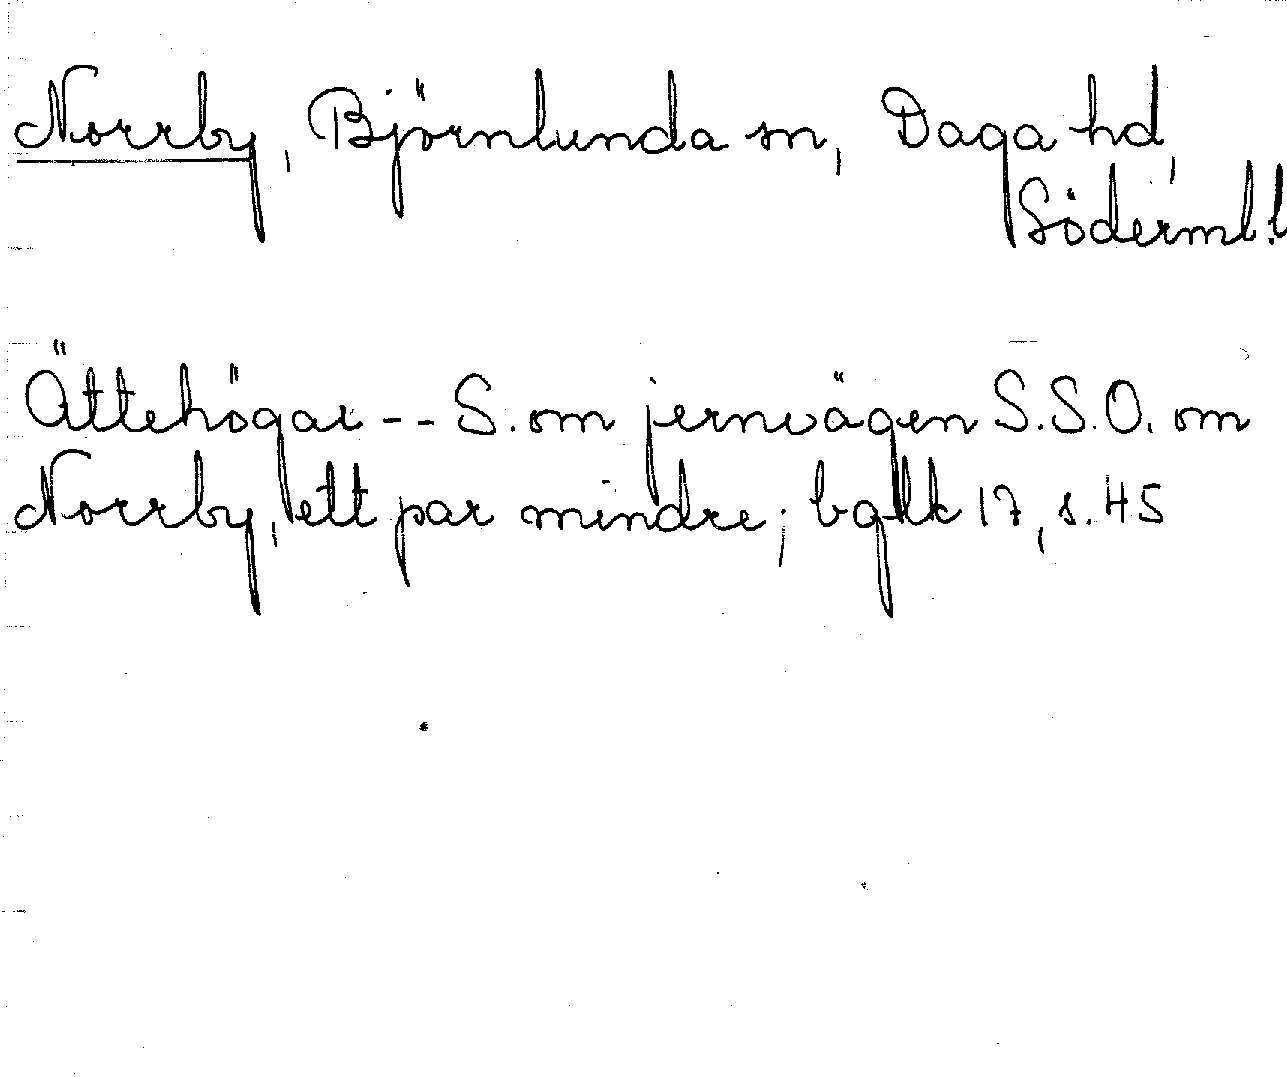 Norrby, Björnlunda sn, Daga hd,
Söderml.l
Ättehögar -- S. om jernvägen S.S.O. om
Norrby, ett par mindre; bglk 17, s. 45